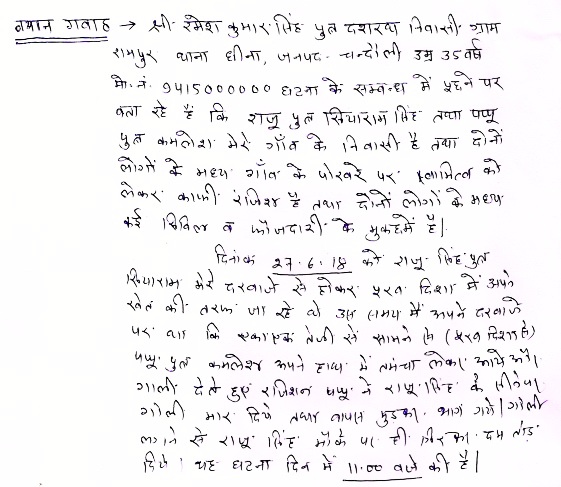 बयान गवाह → श्री रमेश कुमार सिंह पुत्र दशरथ निवासी ग्राम
रामपुर थाना धीना, जनपद- चन्दौली उम्र 35 वर्ष
मो. नं. 9415000000 घटना के सम्बन्ध में पूछने पर
बता रहे हैं कि राजू पुत्र सियाराम सिंह तथा पप्पू
पुत्र कमलेश मेरे गाँव के निवासी है तथा दोनों
लोगों के मध्य गाँव के पोखरे पर स्वामित्व को
लेकर काफी रंजिश है तथा दोनों लोगों के मध्य
कई सिविल व फौजदारी के मुकद्दमें है।
दिनांक 27.6.18 को राजू सिंह पुत्र
सियाराम मेरे दरवाजे से होकर पूरब दिशा में अपने
खेत की तरफ जा रहे थे उस समय मैं अपने दरवाजे
पर था कि एकाएक तेजी से सामने से (पूरब दिशा से)
पप्पू पुत्र कमलेश अपने हाथ में तमंचा लेकर आये और
गाली देते हुए रंजिशन पप्पू ने राजू सिंह के सीने पर
गोली मार दिये तथा वापस मुड़कर भाग गये। गोली
लगने से राजू सिंह मौके पर ही गिरकर दम तोड़
दिये। यह घटना दिन में 11.00 बजे की है।